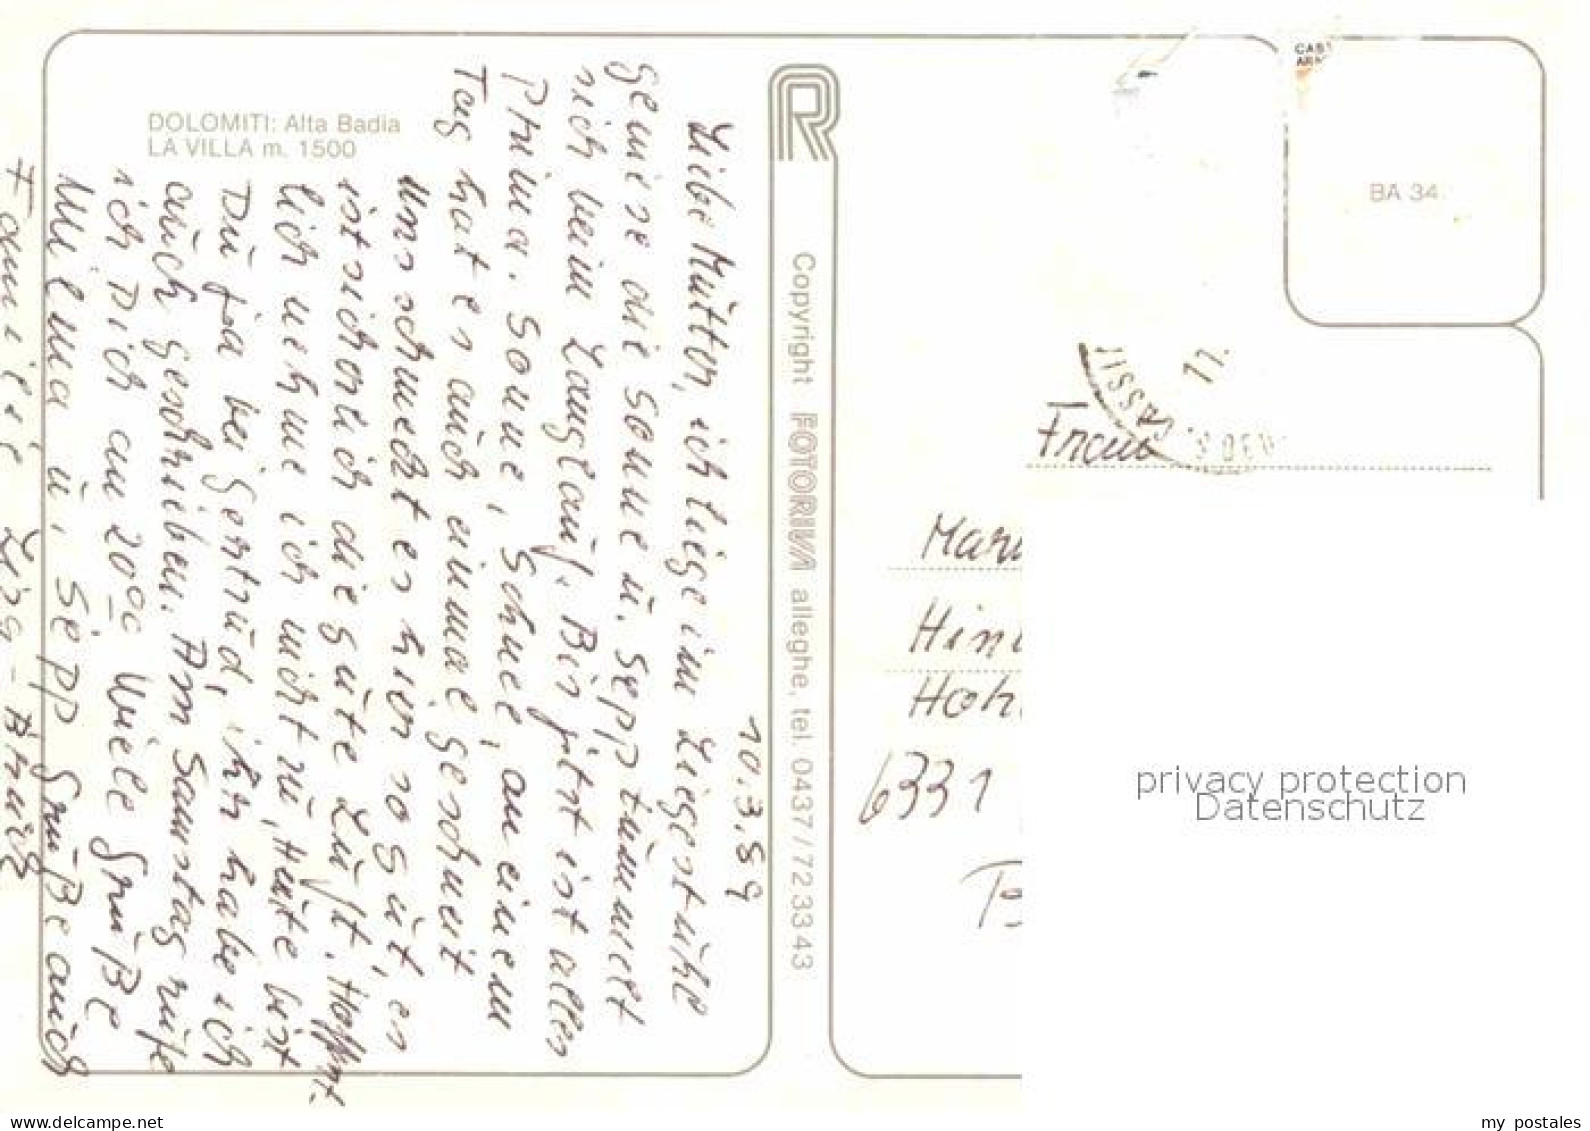 DOLOMITI: Alta Badia
LA VILLA m. 1500
10.3.89
Liebe Mutter, ich liege im Liegestuhl
genieße die Sonne u. Sepp tummelt
sich beim Langlauf. Bis jetzt ist alles
Prima. Sonne, Schnee, an einem
Tag hat es auch einmal geschneit
Uns schmeckt es hier so gut, es
ist sicherlich die gute Luft. Hoffent-
lich nehme ich nicht zu, Heute bist
Du ja bei Gertrud, ihr habe ich
auch geschrieben. Am Samstag rufe
ich Dich an 20oo Viele Grüße
Milma u. Sepp Grüße auch
Familie
Copyright FOTORIVA alleghe, tel. 0437/723343
R
CAS
ARA
BA 34
CASSI
11.
Frau
Mari
Hin
Hoh
6331
privacy protection
Datenschutz
my postales